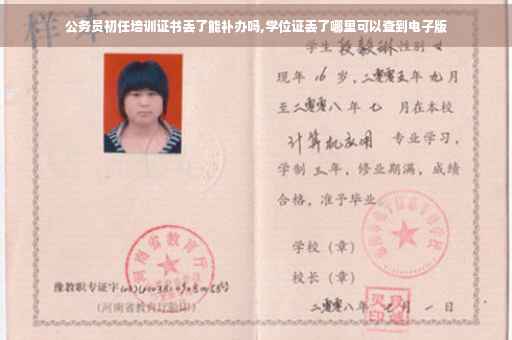 公务员初任培训证书丢了能补办吗,学位证丢了哪里可以查到电子版
样本
学生段毅琳性别女
现年16岁,二零零五年九月
至二零零八年七月在本校
计算机应用 专业学习,
学制三年,修业期满,成绩
合格,准予毕业。
学校(章)
校长(章)
二零零八年七月一日
河南省教育厅
豫教职专证字
(河南省教育厅验印)